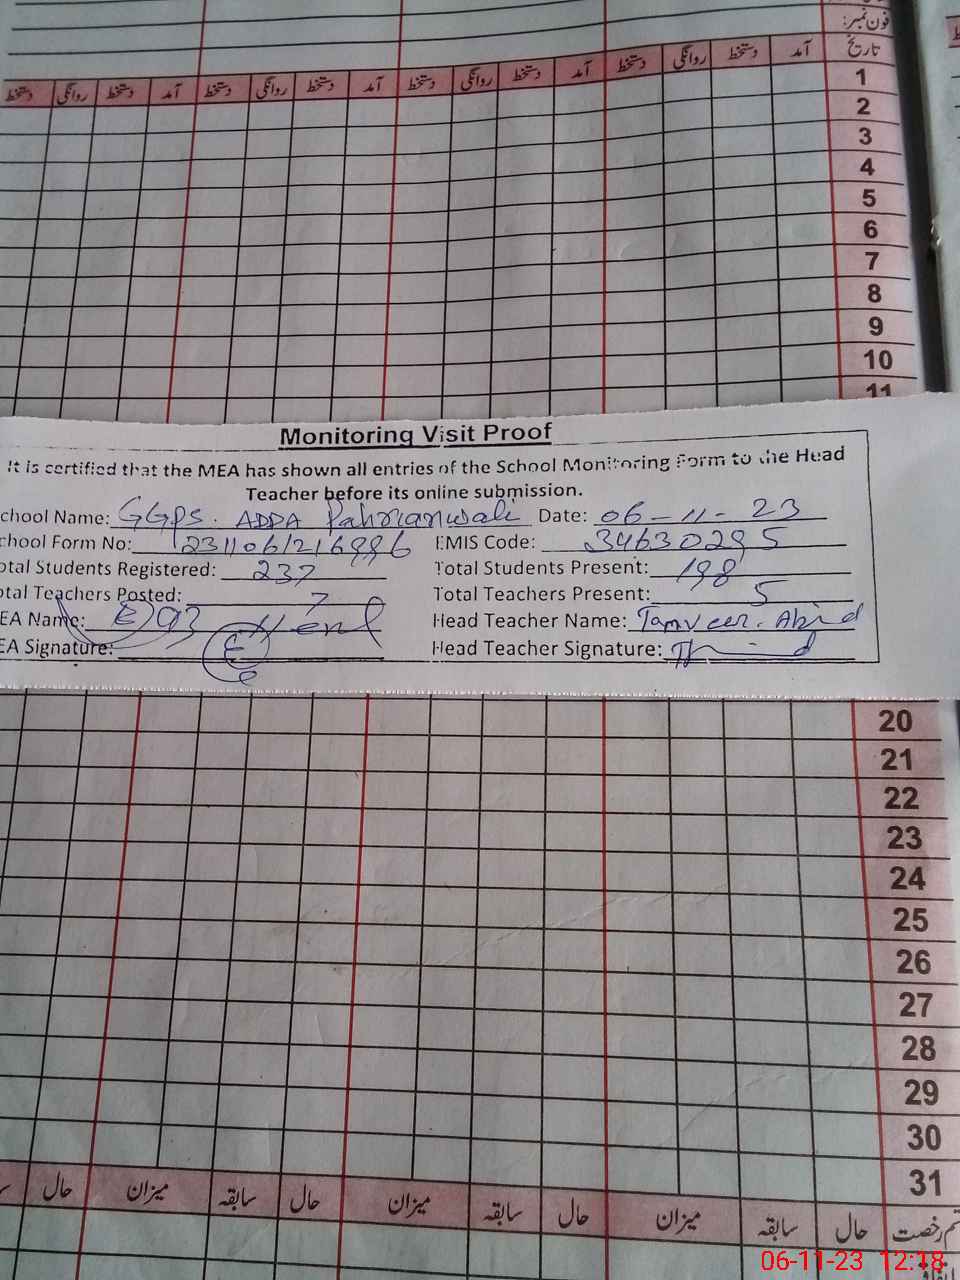 فون نمبر:
تاریخ آمد دستخط روانگی دستخط آمد دستخط روانگی دستخط آمد دستخط روانگی دستخط آمد دستخط روانگی دستخط
1
2
3
4
5
6
7
8
9
10
11
Monitoring Visit Proof
It is certified that the MEA has shown all entries of the School Monitoring Form to the Head
Teacher before its online submission.
chool Name: GGPS. ADDA Pahrianwali Date: 06-11-23
chool Form No: EMIS Code: 34630295
otal Students Registered: 237 Total Students Present: 198
otal Teachers Posted: 7 Total Teachers Present: 5
EA Name: Head Teacher Name: Tanveer. Abid
EA Signature: Head Teacher Signature:
20
21
22
23
24
25
26
27
28
29
30
31
رخصت حال سابقہ میزان حال سابقہ میزان حال سابقہ میزان حال
06-11-23 12:18